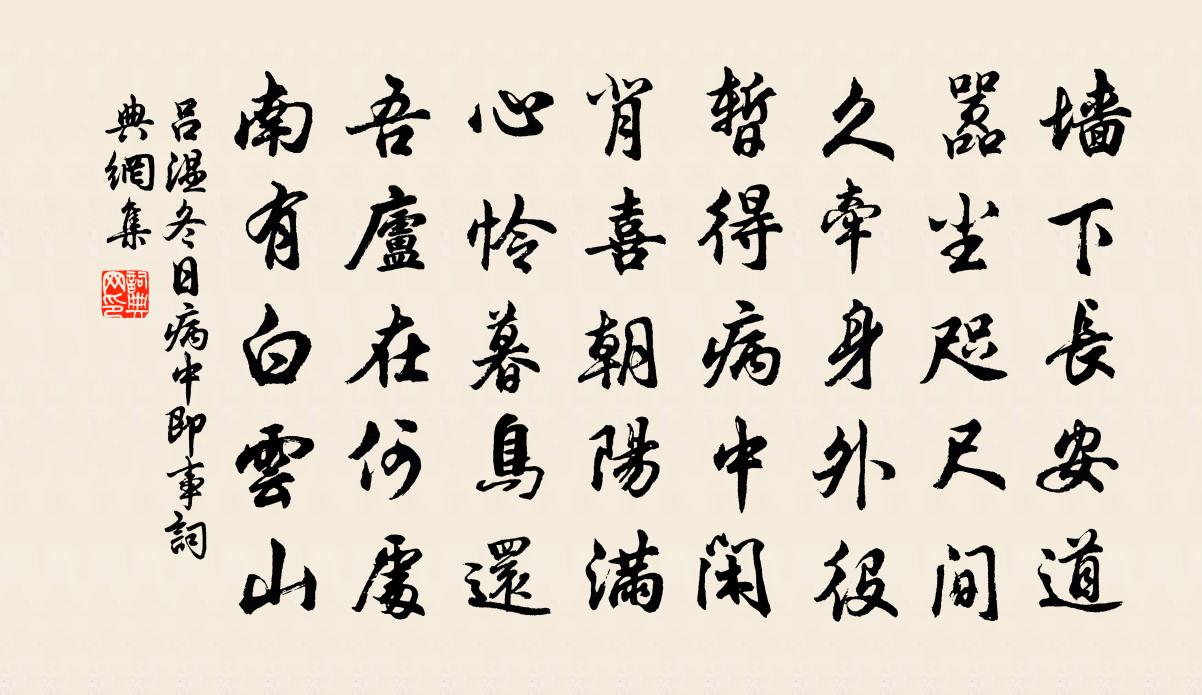 墙下長安道
囂尘咫尺间
久牽身外役
暫得病中闲
背喜朝陽满
心怜暮鳥還
吾廬在何處
南有白雲山
吕温冬日病中即事詞
典網集
詞典
网印